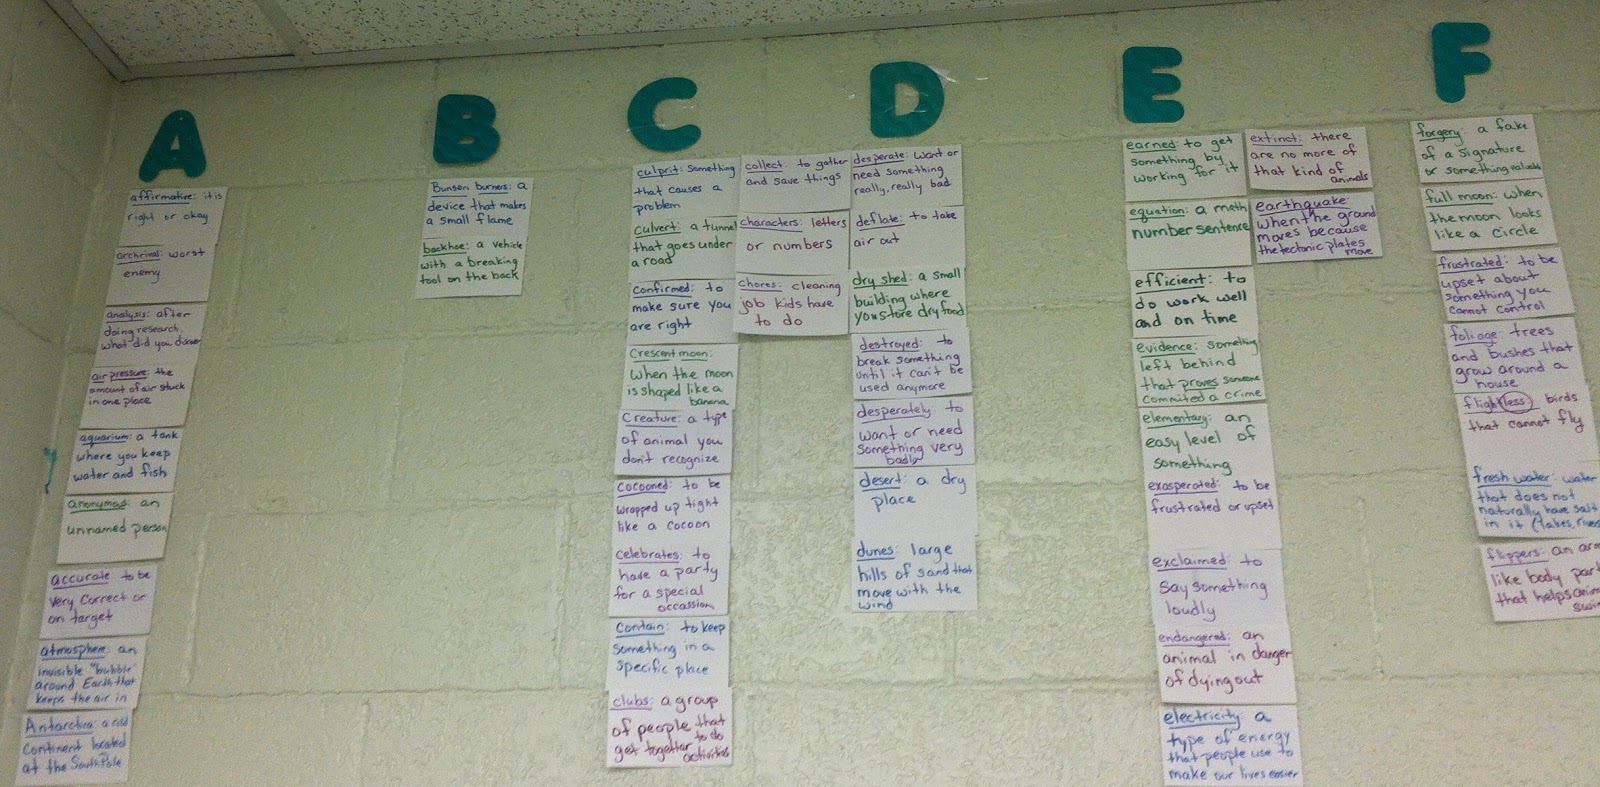 A
affirmative: it is
right or okay
archrival: worst
enemy
analysis: after
doing research,
what did you discover
air pressure: the
amount of air stuck
in one place
aquarium: a tank
where you keep
water and fish
anonymous: an
unnamed person
accurate: to be
very correct or
on target
atmosphere: an
invisible "bubble"
around Earth that
keeps the air in
Antarctica: a cold
continent located
at the South Pole
B
Bunsen burners: a
device that makes
a small flame
backhoe: a vehicle
with a breaking
tool on the back
C
culprit: something
that causes a
problem
culvert: a tunnel
that goes under
a road
confirmed: to
make sure you
are right
Crescent moon:
when the moon
is shaped like a
banana
Creature: a type
of animal you
don't recognize
cocooned: to be
wrapped up tight
like a cocoon
celebrates: to
have a party
for a special
occassion
contain: to keep
something in a
specific place
clubs: a group
of people that
get together to do
activities
collect: to gather
and save things
characters: letters
or numbers
chores: cleaning
job kids have
to do
D
desperate: want or
need something
really, really bad
deflate: to take
air out
dry shed: a small
building where
you store dry food
destroyed: to
break something
until it can't be
used anymore
desperately: to
want or need
something very
badly
desert: a dry
place
dunes: large
hills of sand that
move with the
wind
E
earned: to get
something by
working for it
equation: a math
number sentence
efficient: to
do work well
and on time
evidence: something
left behind
that proves someone
commited a crime
elementary: an
easy level of
something
exasperated: to be
frustrated or upset
exclaimed: to
say something
loudly
endangered: an
animal in danger
of dying out
electricity: a
type of energy
that people use to
make our lives easier
extinct: there
are no more of
that kind of
animals
earthquake:
when the ground
moves because
the tectonic plates
move
F
forgery: a fake
of a signature
or something valuable
full moon: when
the moon looks
like a circle
frustrated: to be
upset about
something you
cannot control
foliage: trees
and bushes that
grow around a
house
flightless: birds
that cannot fly
fresh water: water
that does not
naturally have salt
in it (lakes,
flippers: an arm
like body part
that helps